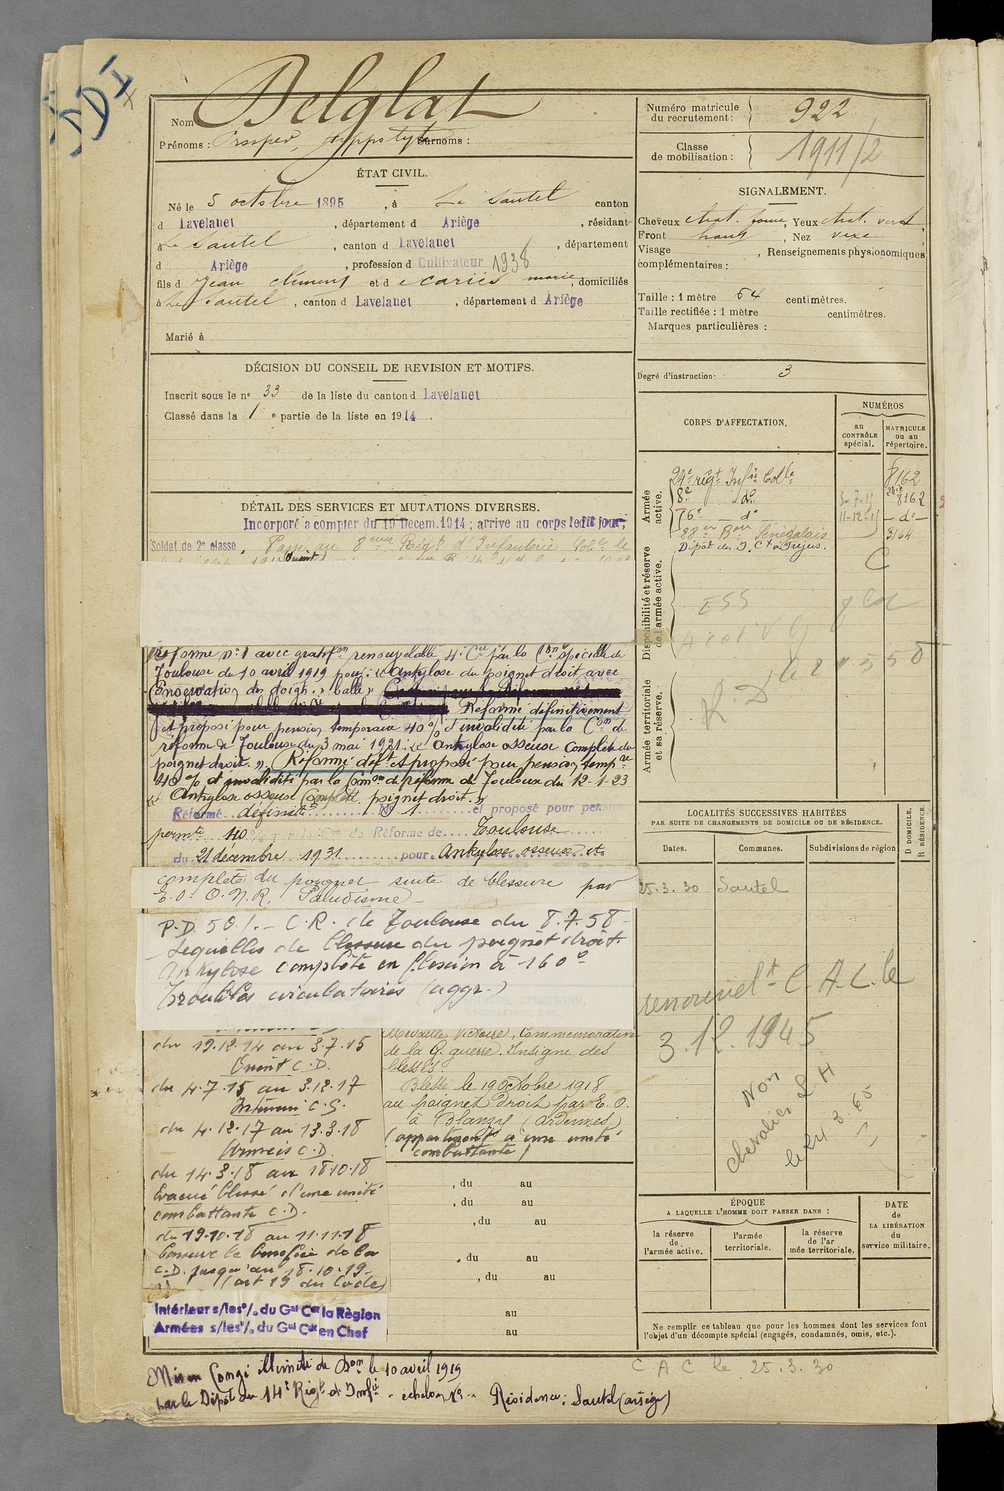 DDI
Nom : Delglat
Prénoms : Prosper, Hyppolyte Surnoms :
Numéro matricule du recrutement : 922
Classe de mobilisation : 1911/2
ÉTAT CIVIL.
Né le 5 octobre 1895, à Le Sautel canton
d Lavelanet, département d Ariège, résidant
à Le Sautel, canton d Lavelanet, département
d Ariège, profession d Cultivateur 1938
fils d Jean Clément et d marie, domiciliés
à Le Sautel, canton d Lavelanet, département d Ariège
Marié à
SIGNALEMENT.
Cheveux chat. , Yeux chat.
Front haut, Nez
Visage , Renseignements physionomiques
complémentaires :
Taille : 1 mètre 64 centimètres.
Taille rectifiée : 1 mètre centimètres.
Marques particulières :
Degré d'instruction : 3
DÉCISION DU CONSEIL DE REVISION ET MOTIFS.
Inscrit sous le n° 33 de la liste du canton d Lavelanet
Classé dans la 1 e partie de la liste en 1914.
CORPS D'AFFECTATION.
NUMÉROS
au CONTRÔLE spécial.
MATRICULE ou au répertoire.
Armée active.
24e régt Infie Colle 8162
8e do 8162
76e do 11-12-15 - do -
28en Bon Sénégalais 3164
Dépôt des I. Ct à Fréjus.
Disponibilité et réserve de l'armée active.
Armée territoriale et sa réserve.
DÉTAIL DES SERVICES ET MUTATIONS DIVERSES.
Incorporé à compter du 19 Decem. 1914 ; arrivé au corps ledit jour,
Soldat de 2e classe. Passé au 8eme Régt d'Infanterie Colle le
Réforme n° 1 avec gratifon renouvelable 4e Cie par la Con spéciale de
Toulouse du 10 avril 1919 pour : « Ankylose du poignet droit avec
Conservation des doigts » balle »
Réformé définitivement
et proposé pour pension temporaire 40 % d'invalidité par la Con de
réforme de Toulouse du 3 mai 1921 : « Ankylose osseuse complète du
poignet droit. » Réformé deft et proposé pour pension tempre
40 % d'invalidité par la Comon de réforme de Toulouse du 12-1-23
« Ankylose osseuse complète poignet droit. »
Réformé définitt N° 1 et proposé pour pen
permte 40 % Con de Réforme de Toulouse
du 21 décembre 1931 pour Ankylose osseuse et
complète du poignet suite de blessure par
E.O. O.N.R. Paludisme -
P.D. 50 %. - C.R. de Toulouse du 8.7.58 -
Sequelles de blessure du poignet droit.
Ankylose complète en flexion à -160°
Troubles circulatoires (aggr.)
CITATIONS,
du 19.12.14 au 3.7.15
Orient C.D.
du 4.7.15 au 3.12.17
Intérieur C.S.
du 4.12.17 au 13.3.18
Armées C.D.
du 14.3.18 au 18.10.18
Evacué blessé d'une unité
combattante C.D.
du 19.10.18 au 11.11.18
Conserve le bénéfice de la
C.D. jusqu'au 18.10.19
(art 19 du Code)
Intérieur s/les o/. du Gal Ct la Règion
Armées s/les o/. du Gal Ct en Chef
Médaille Victoire, Commémorative
de la G. guerre. Insigne des
blessés
Blessé le 19 Octobre 1918
au poignet droit par E.O.
à Blanzy (ardennes)
(appartenant à une unité
combattante)
, du au
, du au
, du au
, du au
, du au
au
au
LOCALITÉS SUCCESSIVES HABITÉES
PAR SUITE DE CHANGEMENTS DE DOMICILE OU DE RÉSIDENCE.
Dates.
Communes.
Subdivisions de région
D DOMICILE.
R RÉSIDENCE.
25.3.30 Sautel
renouvelt C.A.C. le
3.12.1945
Non
chevalier L H
le 24 3 65
ÉPOQUE
A LAQUELLE L'HOMME DOIT PASSER DANS :
la réserve de l'armée active.
l'armée territoriale.
la réserve de l'armée territoriale.
DATE de LA LIBÉRATION du service militaire.
Ne remplir ce tableau que pour les hommes dont les services font
l'objet d'un décompte spécial (engagés, condamnés, omis, etc.).
C A C le 25.3.30
Mis en Congé illimité de Don le 10 avril 1919
par le Dépôt du 14e Régt d'Infie - echelon N° - Résidence : Sautel (ariège)